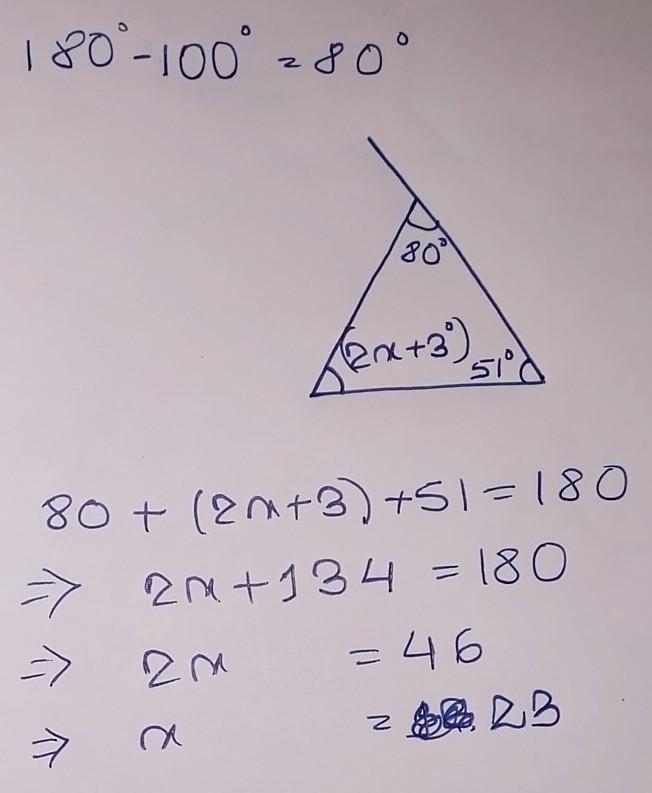 180°-100° = 80°
80°
(2x+3°)
51°
80 + (2x+3) +51 = 180
⇒ 2x+134 = 180
⇒ 2x = 46
⇒ x = 23